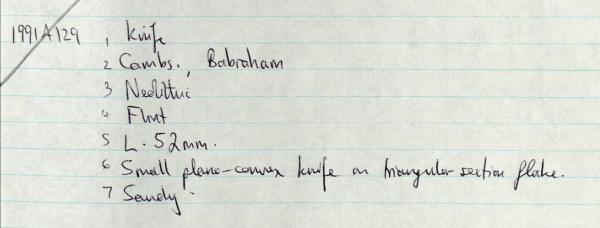 1991A129 1 Knife
2 Cambs., Babraham
3 Neolithic
4 Flint
5 L. 52mm.
6 Small plano-convex knife on triangular-section flake.
7 Sandy.